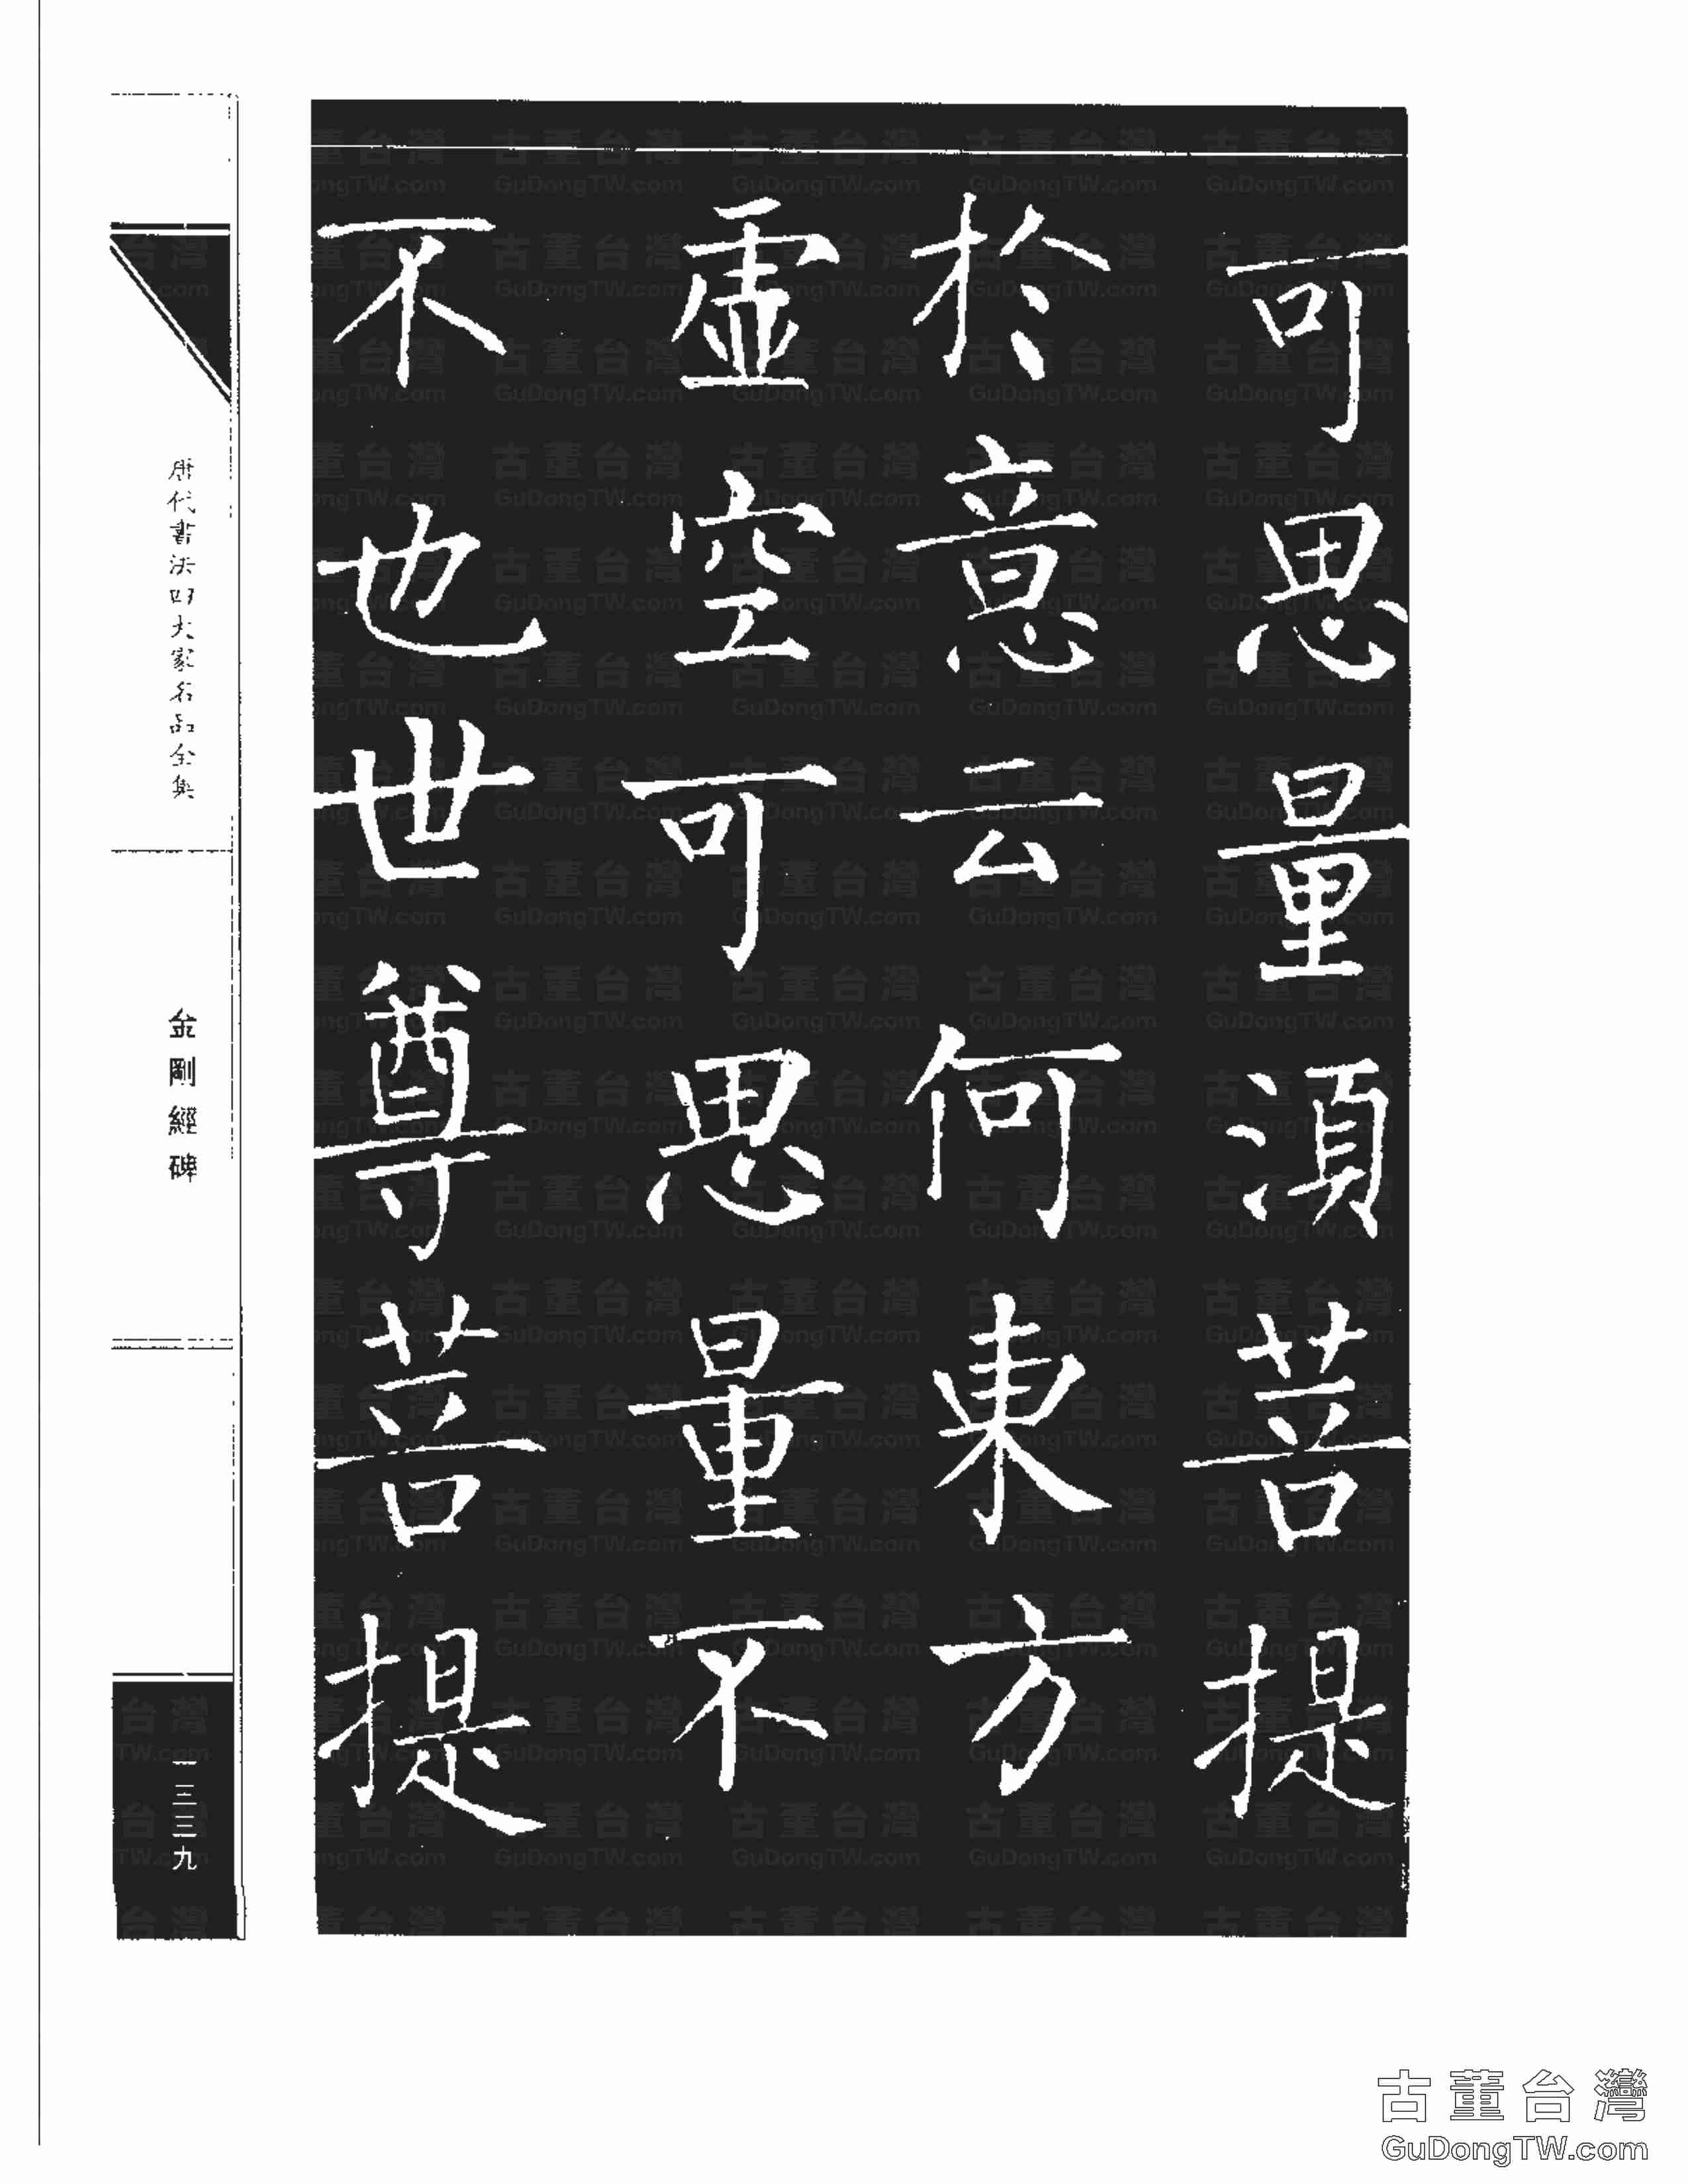 可思量須菩提
於意云何東方
虛空可思量不
不也世尊菩提
唐代書法四大家名品全集
金剛經碑
一三三九
古董台灣
GuDongTW.com